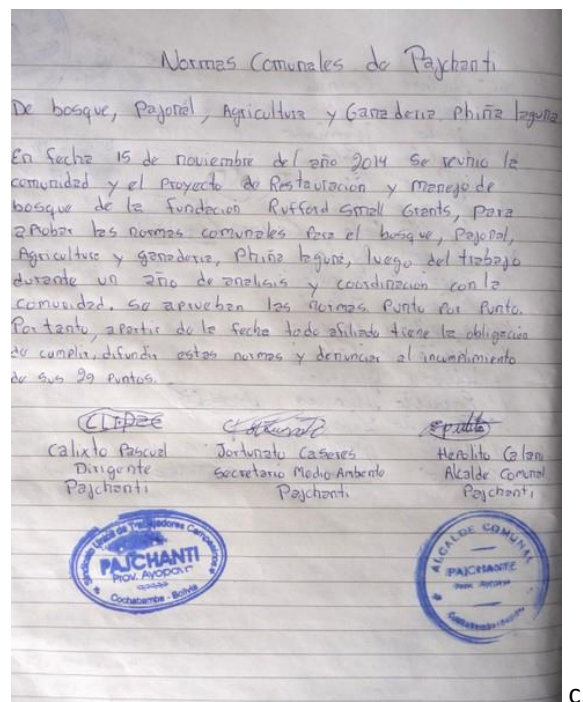 Normas Comunales de Pajchanti
De bosque, Pajonal, Agricultura y Ganaderia Phiña laguna
En fecha 15 de noviembre del año 2014 Se reunio la
comunidad y el Proyecto de Restauracion y manejo de
bosque de la fundacion Rufford Small Grants, para
aprobar las normas comunales Para el bosque, Pajonal,
Agricultura y ganaderia, Phiña laguna, luego del trabajo
durante un año de analisis y coordinacion con la
comunidad. Se aprueban las normas Punto Por Punto.
Por tanto, apartir de la fecha todo afiliado tiene la obligación
de cumplir, difundir estas normas y denunciar al incumplimiento
de sus 29 Puntos.
Calixto Pascual Jortunato Caseres Herolito Galani
Dirigente Secretario Medio Ambente Alcalde Comunal
Pajchanti Pajchanti Pajchanti
Sindicato Unico de Trabajadores Campesinos
PAJCHANTI
Prov. Ayopaya
Cochabamba - Bolivia
ALCALDE COMUNAL
PAJCHANTE
c